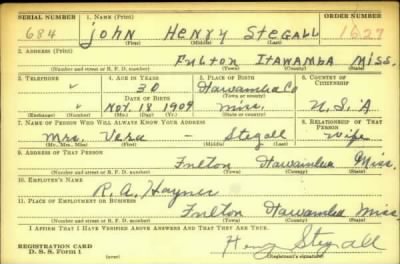 SERIAL NUMBER 1. NAME (Print) ORDER NUMBER
684 John Henry Stegall 1627
(First) (Middle) (Last)
2. ADDRESS (Print)
Fulton Itawamba Miss.
(Number and street or R. F. D. number) (Town) (County) (State)
3. TELEPHONE 4. AGE IN YEARS 5. PLACE OF BIRTH 6. COUNTRY OF CITIZENSHIP
" 30 Itawamba Co
DATE OF BIRTH (Town or county)
" Nov. 18 1909 Miss. U.S.A
(Exchange) (Number) (Mo.) (Day) (Yr.) (State or country)
7. NAME OF PERSON WHO WILL ALWAYS KNOW YOUR ADDRESS 8. RELATIONSHIP OF THAT PERSON
Mrs. Vera - Stegall Wife
(Mr., Mrs., Miss) (First) (Middle) (Last)
9. ADDRESS OF THAT PERSON
Fulton Itawamba Miss.
(Number and street or R. F. D. number) (Town) (County) (State)
10. EMPLOYER'S NAME
R. A.
11. PLACE OF EMPLOYMENT OR BUSINESS
Fulton Itawamba Miss
(Number and street or R. F. D. number) (Town) (County) (State)
I AFFIRM THAT I HAVE VERIFIED ABOVE ANSWERS AND THAT THEY ARE TRUE.
REGISTRATION CARD
D. S. S. Form 1 Henry Stegall